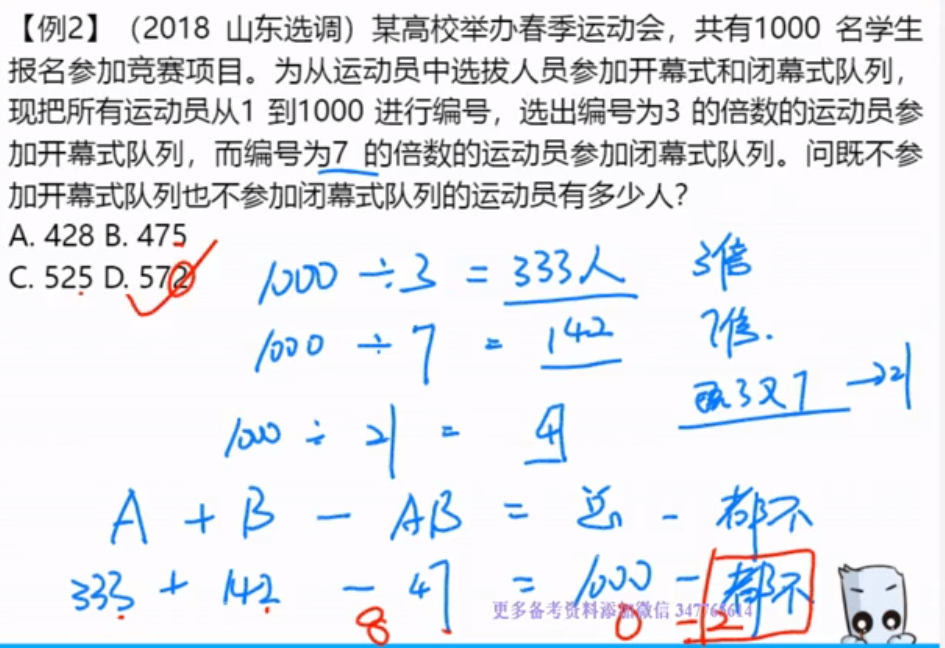 【例2】（2018 山东选调）某高校举办春季运动会，共有1000 名学生
报名参加竞赛项目。为从运动员中选拔人员参加开幕式和闭幕式队列，
现把所有运动员从1 到1000 进行编号，选出编号为3 的倍数的运动员参
加开幕式队列，而编号为7 的倍数的运动员参加闭幕式队列。问既不参
加开幕式队列也不参加闭幕式队列的运动员有多少人？
A. 428 B. 475
C. 525 D. 572
1000 ÷ 3 = 333人 3倍
1000 ÷ 7 = 142 7倍.
既3又7 → 21
1000 ÷ 21 = 47
A + B - AB = 总 - 都不
333 + 142 - 47 = 1000 - 都不
8 0 - 2
更多备考资料添加微信 347768614